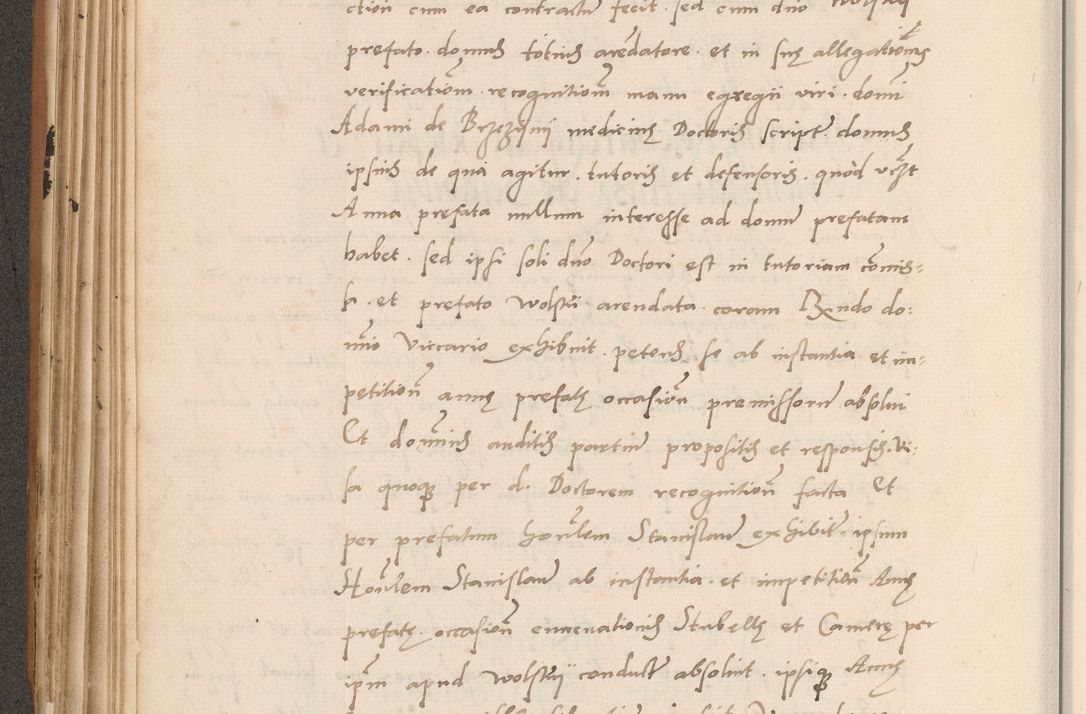 ction cum ea contractu fecit. sed cum dno
prefato. domus totius arēdatore. et in suę allegationis
verificatiōm. recognitiōm manu egregii viri. domī
Adami de Brzeziny medicinę Doctoris script. domus
ipsius de qua agitur. tutoris et defensoris. quòd
Anna prefata nullum interesse ad domū prefatam
habet. sed ipsi soli dno Doctori est in tutoriam cōmis=
sa. et prefato Wolski arendata. coram Rndo do:
mīo Viccario exhibuit. petens se ab instantia et im=
petitiōn annę prefatę occasiōn premissorū absolui
Et dominus auditis partiū propositis et responsis. Vi:
sa quoque per d. Doctorem recognitiōn facta Et
per prefatum honlem Stanislaū exhibit. ipsum
Honlem Stanislaū ab instantia. et impetitiōn Annę
prefatę. occasiōn euacuationis Stubellę et Camerę per
ipm apud Wolskii conduct absoluit. ipsique Annę